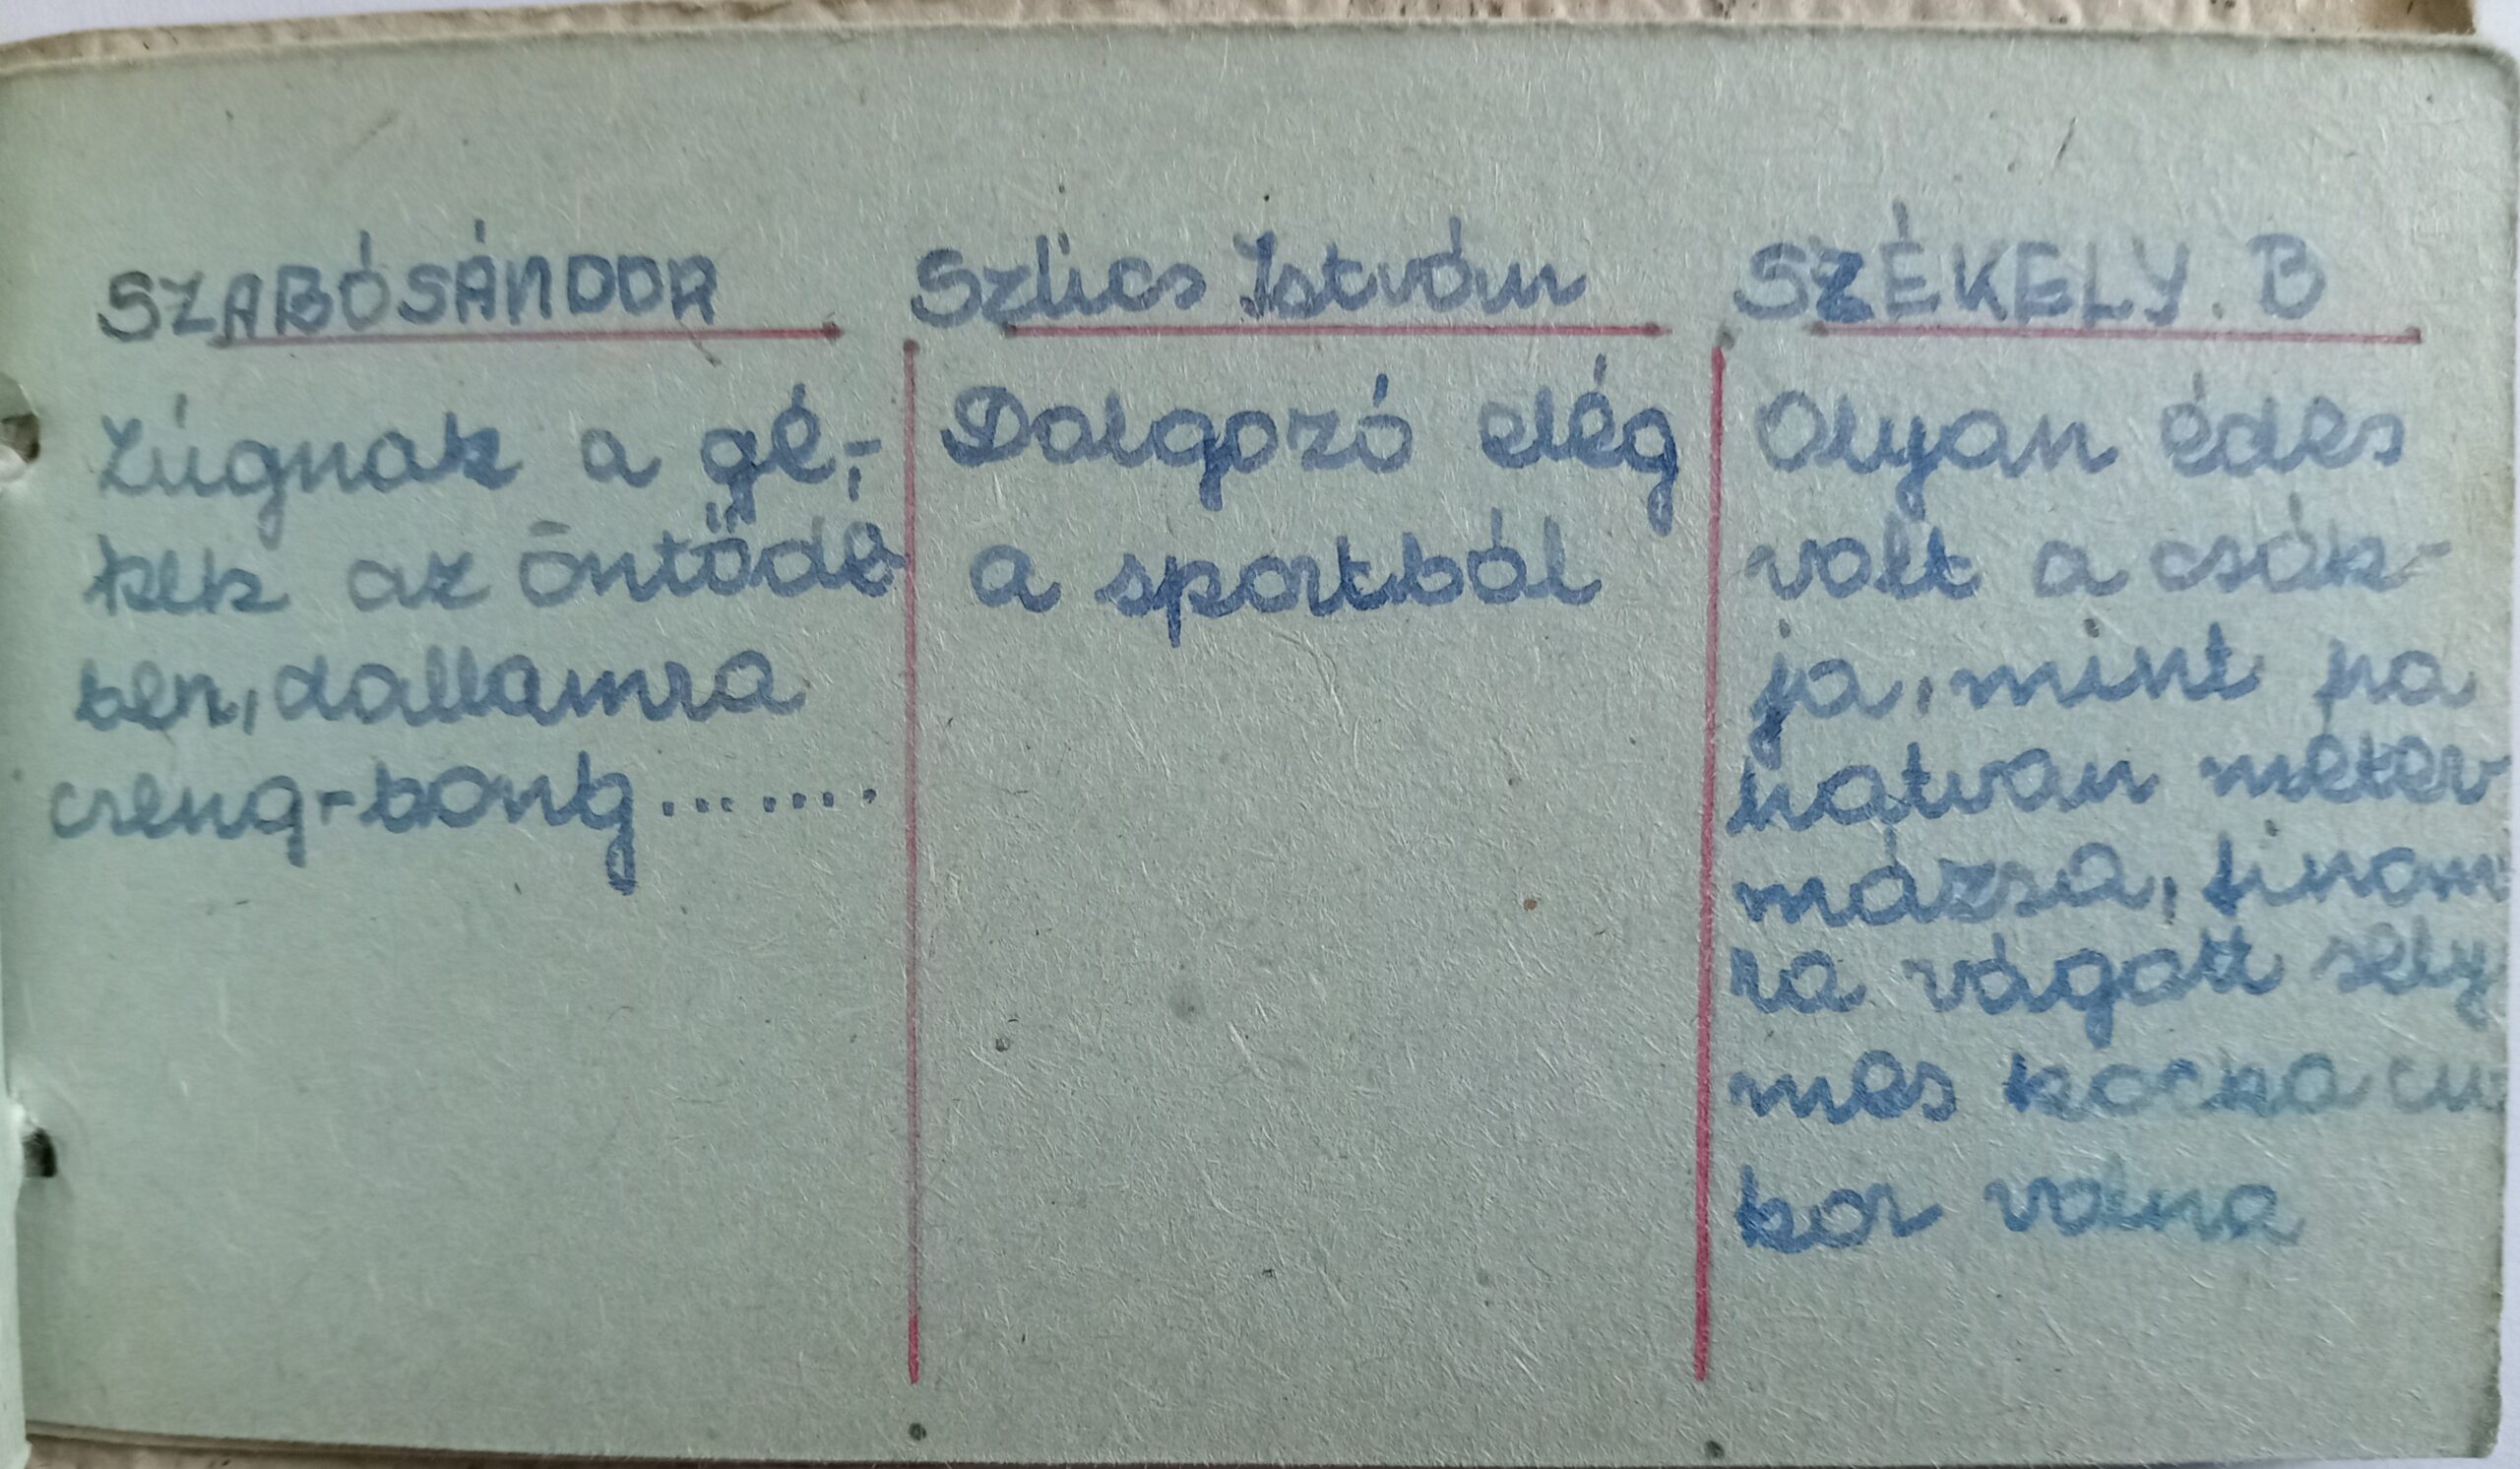 SZABÓSÁNDOR
Zúgnak a gé,-
kek az öntödé
ben, dallamra
cseng-bong........
Szücs István
Dolgozó elég
a sportból
SZÉKELY. B
Olyan édes
volt a csók-
ja, mint ha
hatvan méter
mázsa, finom
ra vágott sely
mes kocka cu
kor volna